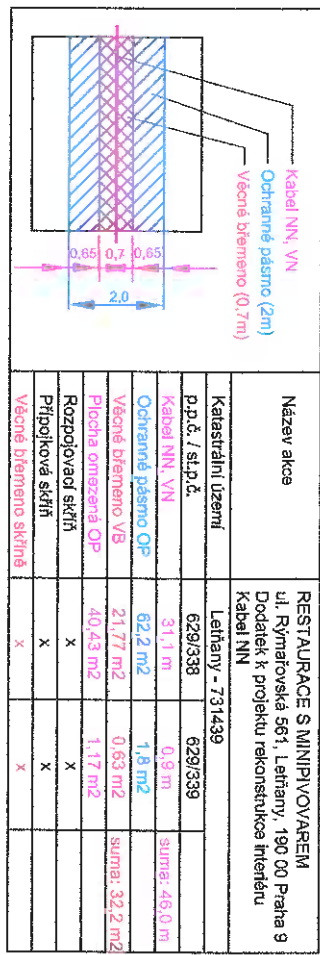 Kabel NN, VN
Ochranné pásmo (2m)
Věcné břemeno (0,7m)
0,65 0,7 0,65
2,0
Název akce
RESTAURACE S MINIPIVOVAREM
ul. Rýmařovská 561, Letňany, 190 00 Praha 9
Dodatek k projektu rekonstrukce interiéru
Kabel NN
Katastrální území Letňany - 731439
p.p.č. / st.p.č. 629/338 629/339
Kabel NN, VN 31,1 m 0,9 m suma: 46,0 m
Ochranné pásmo OP 62,2 m2 1,8 m2
Věcné břemeno VB 21,77 m2 0,63 m2 suma: 32,2 m2
Plocha omezená OP 40,43 m2 1,17 m2
Rozpojovací skříň x x
Přípojková skříň x x
Věcné břemeno skříně x x